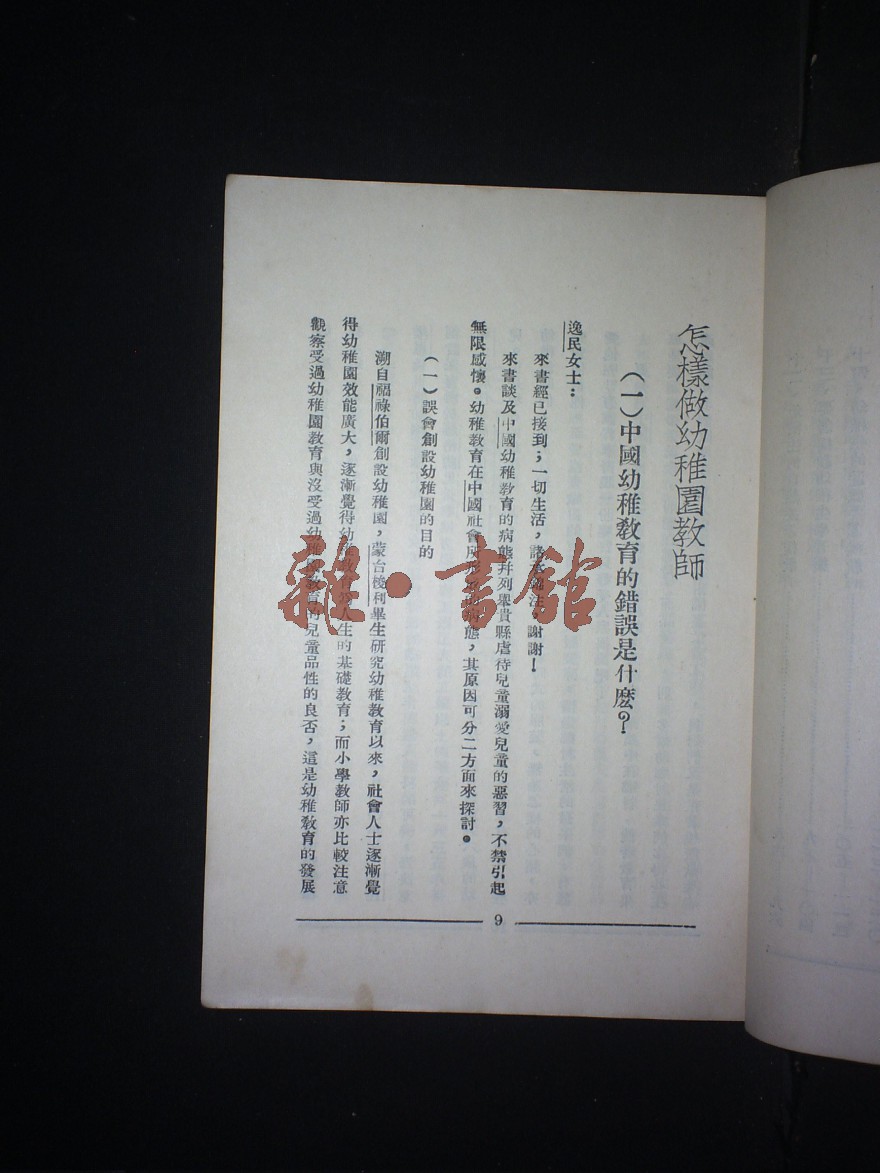 怎樣做幼稚園教師
（一）中國幼稚教育的錯誤是什麽？
逸民女士：
來書經已接到；一切生活，諸 注 謝謝！
來書談及中國幼稚教育的病態幷列舉貴縣虐待兒童溺愛兒童的惡習，不禁引起
無限感懷。幼稚教育在中國社會 態，其原因可分二方面來探討。
（一）誤會創設幼稚園的目的
溯自福祿伯爾創設幼稚園，蒙台梭利畢生研究幼稚教育以來，社會人士逐漸覺
得幼稚園效能廣大，逐漸覺得幼稚教育為人生的基礎教育；而小學教師亦比較注意
觀察受過幼稚園教育與沒受過幼稚園教育的兒童品性的良否，這是幼稚教育的發展
9
雜·書館